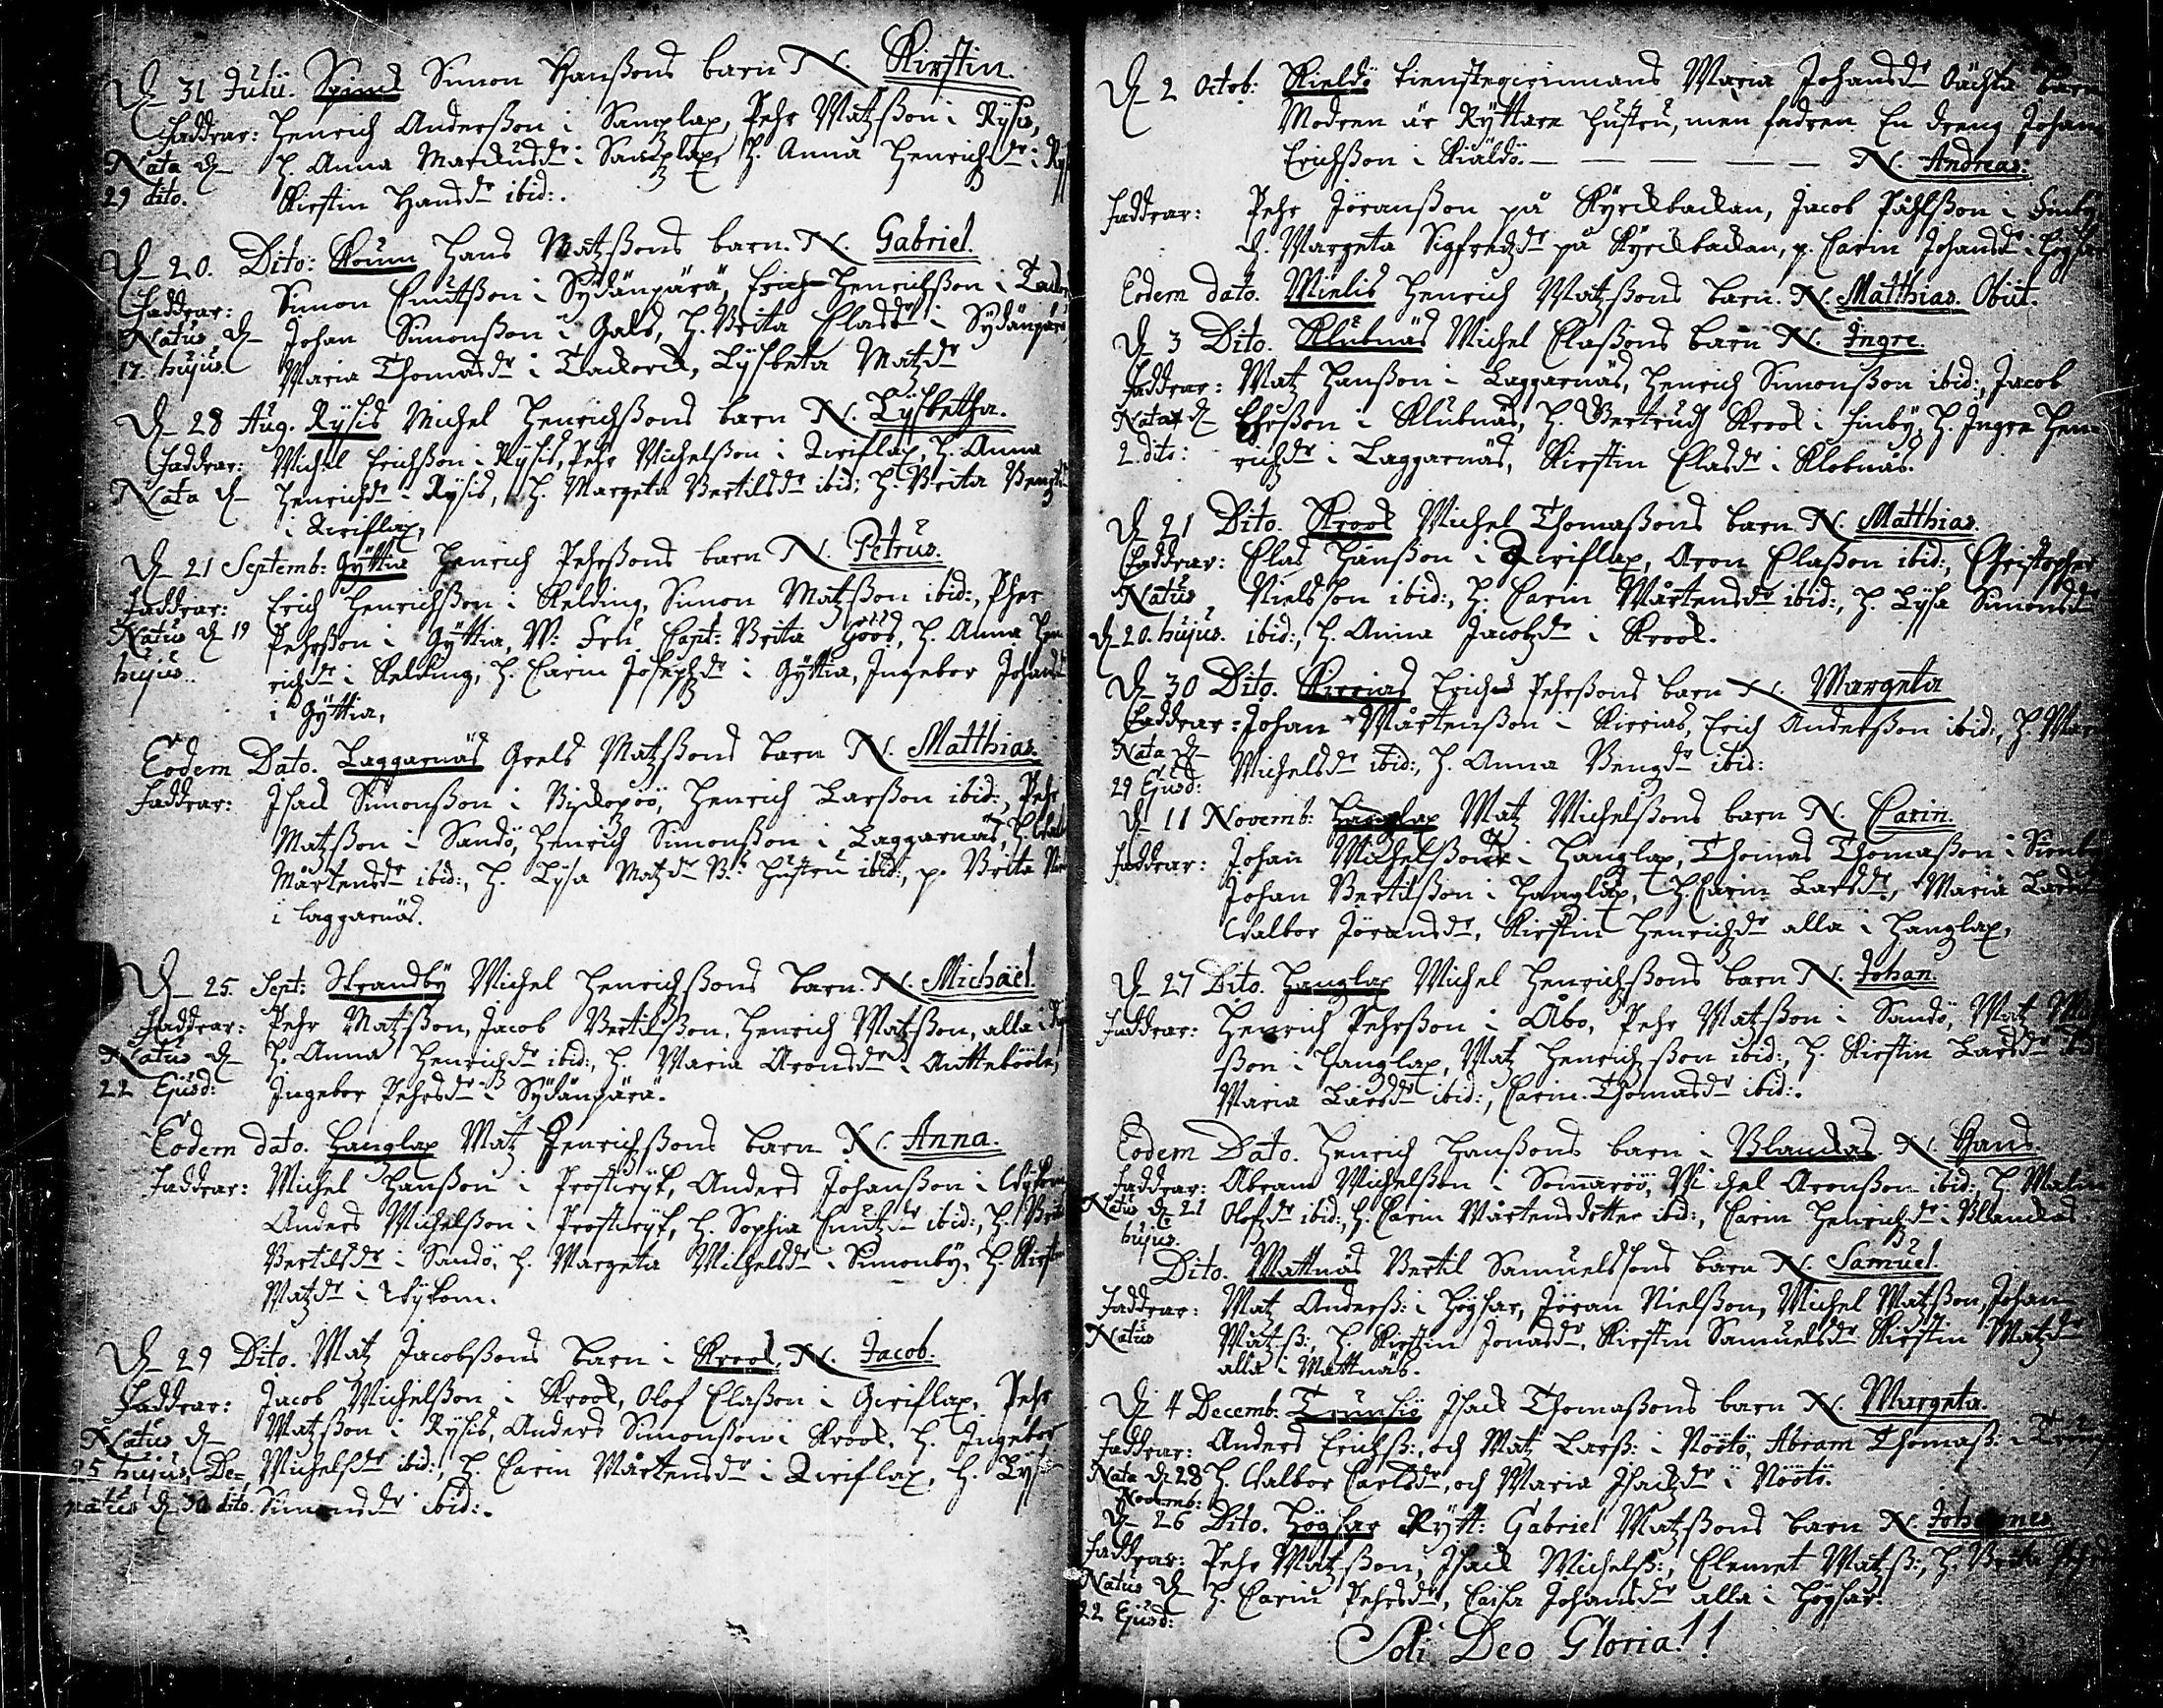 D. 31 Julii. Spink Simon Hanßons barn N. Kirstin.
Faddrar: Henrich Anderßon i Sanglax, Pehr Matzßon i Rysis,
Nata d. H. Anna Marcusdr i Sanglax, H. Anna Henrichsdr i
29 dito. Kirstin Hansdr ibid:.
D. 20. Dito: Hans Matzßons barn. N. Gabriel.
Faddrar: Simon Cnutßon i Sydänpärä, Erich Henrichßon i
Natus d. Johan Simonßon i Gals, H. Brita Clasdr i Sydänpärä,
17. hujus. Maria Thomasdr i Lysbeta Matzdr
D. 28 Aug. Rysis Michel Henrichßons barn N. Lysbetha.
Faddrar: Michel Erichßon i Rysis, Pehr Michelßon i Qviflax, H. Anna
Nata d. Henrichsdr i Rysis, H. Margeta Bertilsdr ibid; H. Brita
i Qviflax,
D. 21 Septemb: Gyttia Henrich Pehrßons barn N. Petrus.
Faddrar: Erich Henrichßon i Kelding, Simon Matzßon ibid:, Pher
Natus d. 19 Pehrßon i Gyttia, W: Fru Capt: Brita Göös, H. Anna Hen
hujus. richsdr i Kelding, H. Carin Josephsdr i Gyttia, Ingebor Johansdr
i Gyttia,
Eodem Dato. Laggarnäs Grels Matzßons barn N. Matthias.
Faddrar: Isack Simonßon i Biskopöö, Henrich Larßon ibid:, Pehr
Matzßon i Sandö, Henrich Simonßon i Laggarnäs,
Mårtensdr ibid:, H. Lysa Matzdr hustru ibid:, p. Brita
i Laggarnäs.
D. 25. Sept: Strandby Michel Henrichßons barn. N. Michaël.
Faddrar: Pehr Matzßon, Jacob Bertilßon, Henrich Matzßon, alla i
Natus d. H. Anna Henrichsdr ibid:, H. Maria Aronsdr i Antteböle,
22 Ejusd: Ingebor Pehrsdr i Sydänpärä.
Eodem dato. Hanglax Matz Henrichßons barn N. Anna.
Faddrar: Michel Hanßon i Prostvyk, Anders Johanßon i
Anders Michelßon i Prostvyk, H. Sophia Cnutzdr ibid:, H.
Bertilsdr i Sandö, H. Margeta Michelsdr i Simonby, H.
Matzdr i
D. 29 Dito. Matz Jacobßons barn i Krook. N. Jacob.
Faddrar: Jacob Michelßon i Krook, Olof Claßon i Qviflax, Pehr
Natus d. Matzßon i Rysis, Anders Simonßon i Krook, H. Ingebor
25 hujus. De- Michelsdr ibid:, H. Carin Mårtensdr i Qviflax, H. Lysa
natus d. 30 dito. Simonsdr ibid:.
D. 2 Octob: Kieldö Maria Johansdr oächta barn
Modren är Ryttare hustru, men fadren En dreng Johan
Erichßon i Kiäldö. — — — — N. Andreas:
Faddrar: Pehr Jöranßon på Kyrckbackan, Jacob Påhlßon i Finby
H. Margeta Sigfredzdr på Kyrckbackan, p. Carin Johansdr i Högsar
Eodem dato. Mielis Henrich Matzßons barn. N. Matthias. Obiit.
D. 3 Dito. Klubnäs Michel Claßons barn N. Ingre.
Faddrar: Matz Hanßon i Laggarnäs, Henrich Simonßon ibid:, Jacob
Nata d. Ehrßon i Klubnäs, H. Gertrud Krook i Finby, H. Ingre Hen-
2 dito: richsdr i Laggarnäs, Kirstin Clasdr i Klobnäs.
D. 21 Dito. Krook Michel Thomaßons barn N. Matthias.
Faddrar: Clas Hanßon i Qviflax, Aron Claßon ibid:, Christopher
Natus Nielsson ibid:, H. Carin Mårtensdr ibid:, H. Lysa Simonsdr
d. 20. hujus. ibid:, H. Anna Jacobzdr i Krook.
D. 30 Dito. Kirrias Erich Pehrßons barn N. Margeta
Faddrar: Johan Mårtenßon i Kirrias, Erich Anderßon ibid:,
Nata d. Michelsdr ibid:, H. Anna Bengdr ibid:
29 Ejusd:
D. 11 Novemb: Hanglax Matz Michelßons barn N. Carin.
Faddrar: Johan Michelßon i Hanglax, Thomas Thomaßon i
Johan Bertilßon i Hanglax, H. Carin Larsdr, Maria Larsdr
Valbor Jöransdr, Kirstin Henrichsdr alla i Hanglax,
D. 27 Dito. Hanglax Michel Henrichßons barn N. Johan.
Faddrar: Henrich Pehrßon i Åbo, Pehr Matzßon i Sandö, Matz
ßon i Hanglax, Matz Henrichßon ibid:, H. Kirstin Larsdr
Maria Larsdr ibid:, Carin Thomasdr ibid:.
Eodem Dato. Henrich Hanßons barn i Blanckas. N. Hans
Faddrar: Abram Michelßon i Somaröö, Michel Aronßon ibid:, H. Malin
Natus d. 21 Olofsdr ibid:, H. Carin Mårtensdotter ibid:, Carin Henrichsdr i Blanckas
hujus.
Dito. Mattnäs Bertil Samuelssons barn N. Samuel.
Faddrar: Matz Anderß: i Högsar, Jöran Nielßon, Michel Matzßon, Johan
Natus Matzß:, H. Kirstin Jonasdr, Kirstin Samuelsdr Kirstin Matzdr
alla i Mattnäs.
D. 4 Decemb. Trunsiö Isack Thomaßons barn N. Margeta.
Faddrar: Anders Erichß:, och Matz Larß: i Nöötö, Abram Thomaß: i
Nata d. 28 H. Valbor Carlsdr, och Maria Isackzdr i Nöötö.
Novemb:
D. 26 Dito. Högsar Rytt: Gabriel Matzßons barn N. Johannes
Faddrar: Pehr Matzßon, Isack Michelß:, Clemet Matzß:, H. Brita
Natus d. H. Carin Pehrsdr, Caisa Johansdr alla i Högsar.
22 Ejusd:
Soli Deo Gloria!!